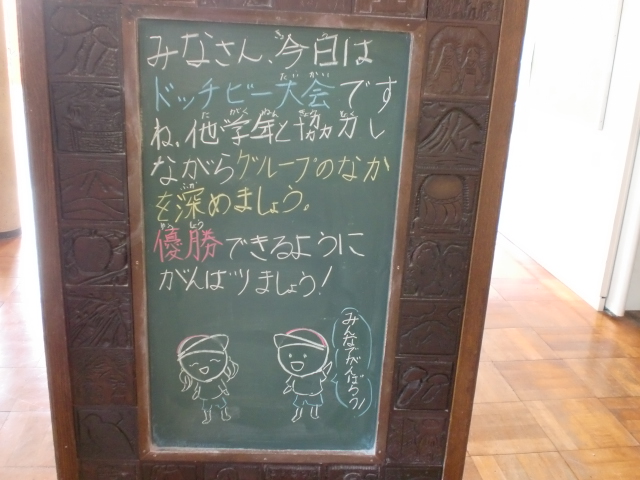 みなさん、今日は
ドッチビー大会です
ね。他学年と協力し
ながらグループのなか
を深めましょう。
優勝できるように
がんばりましょう!
みんなでがんばろう!